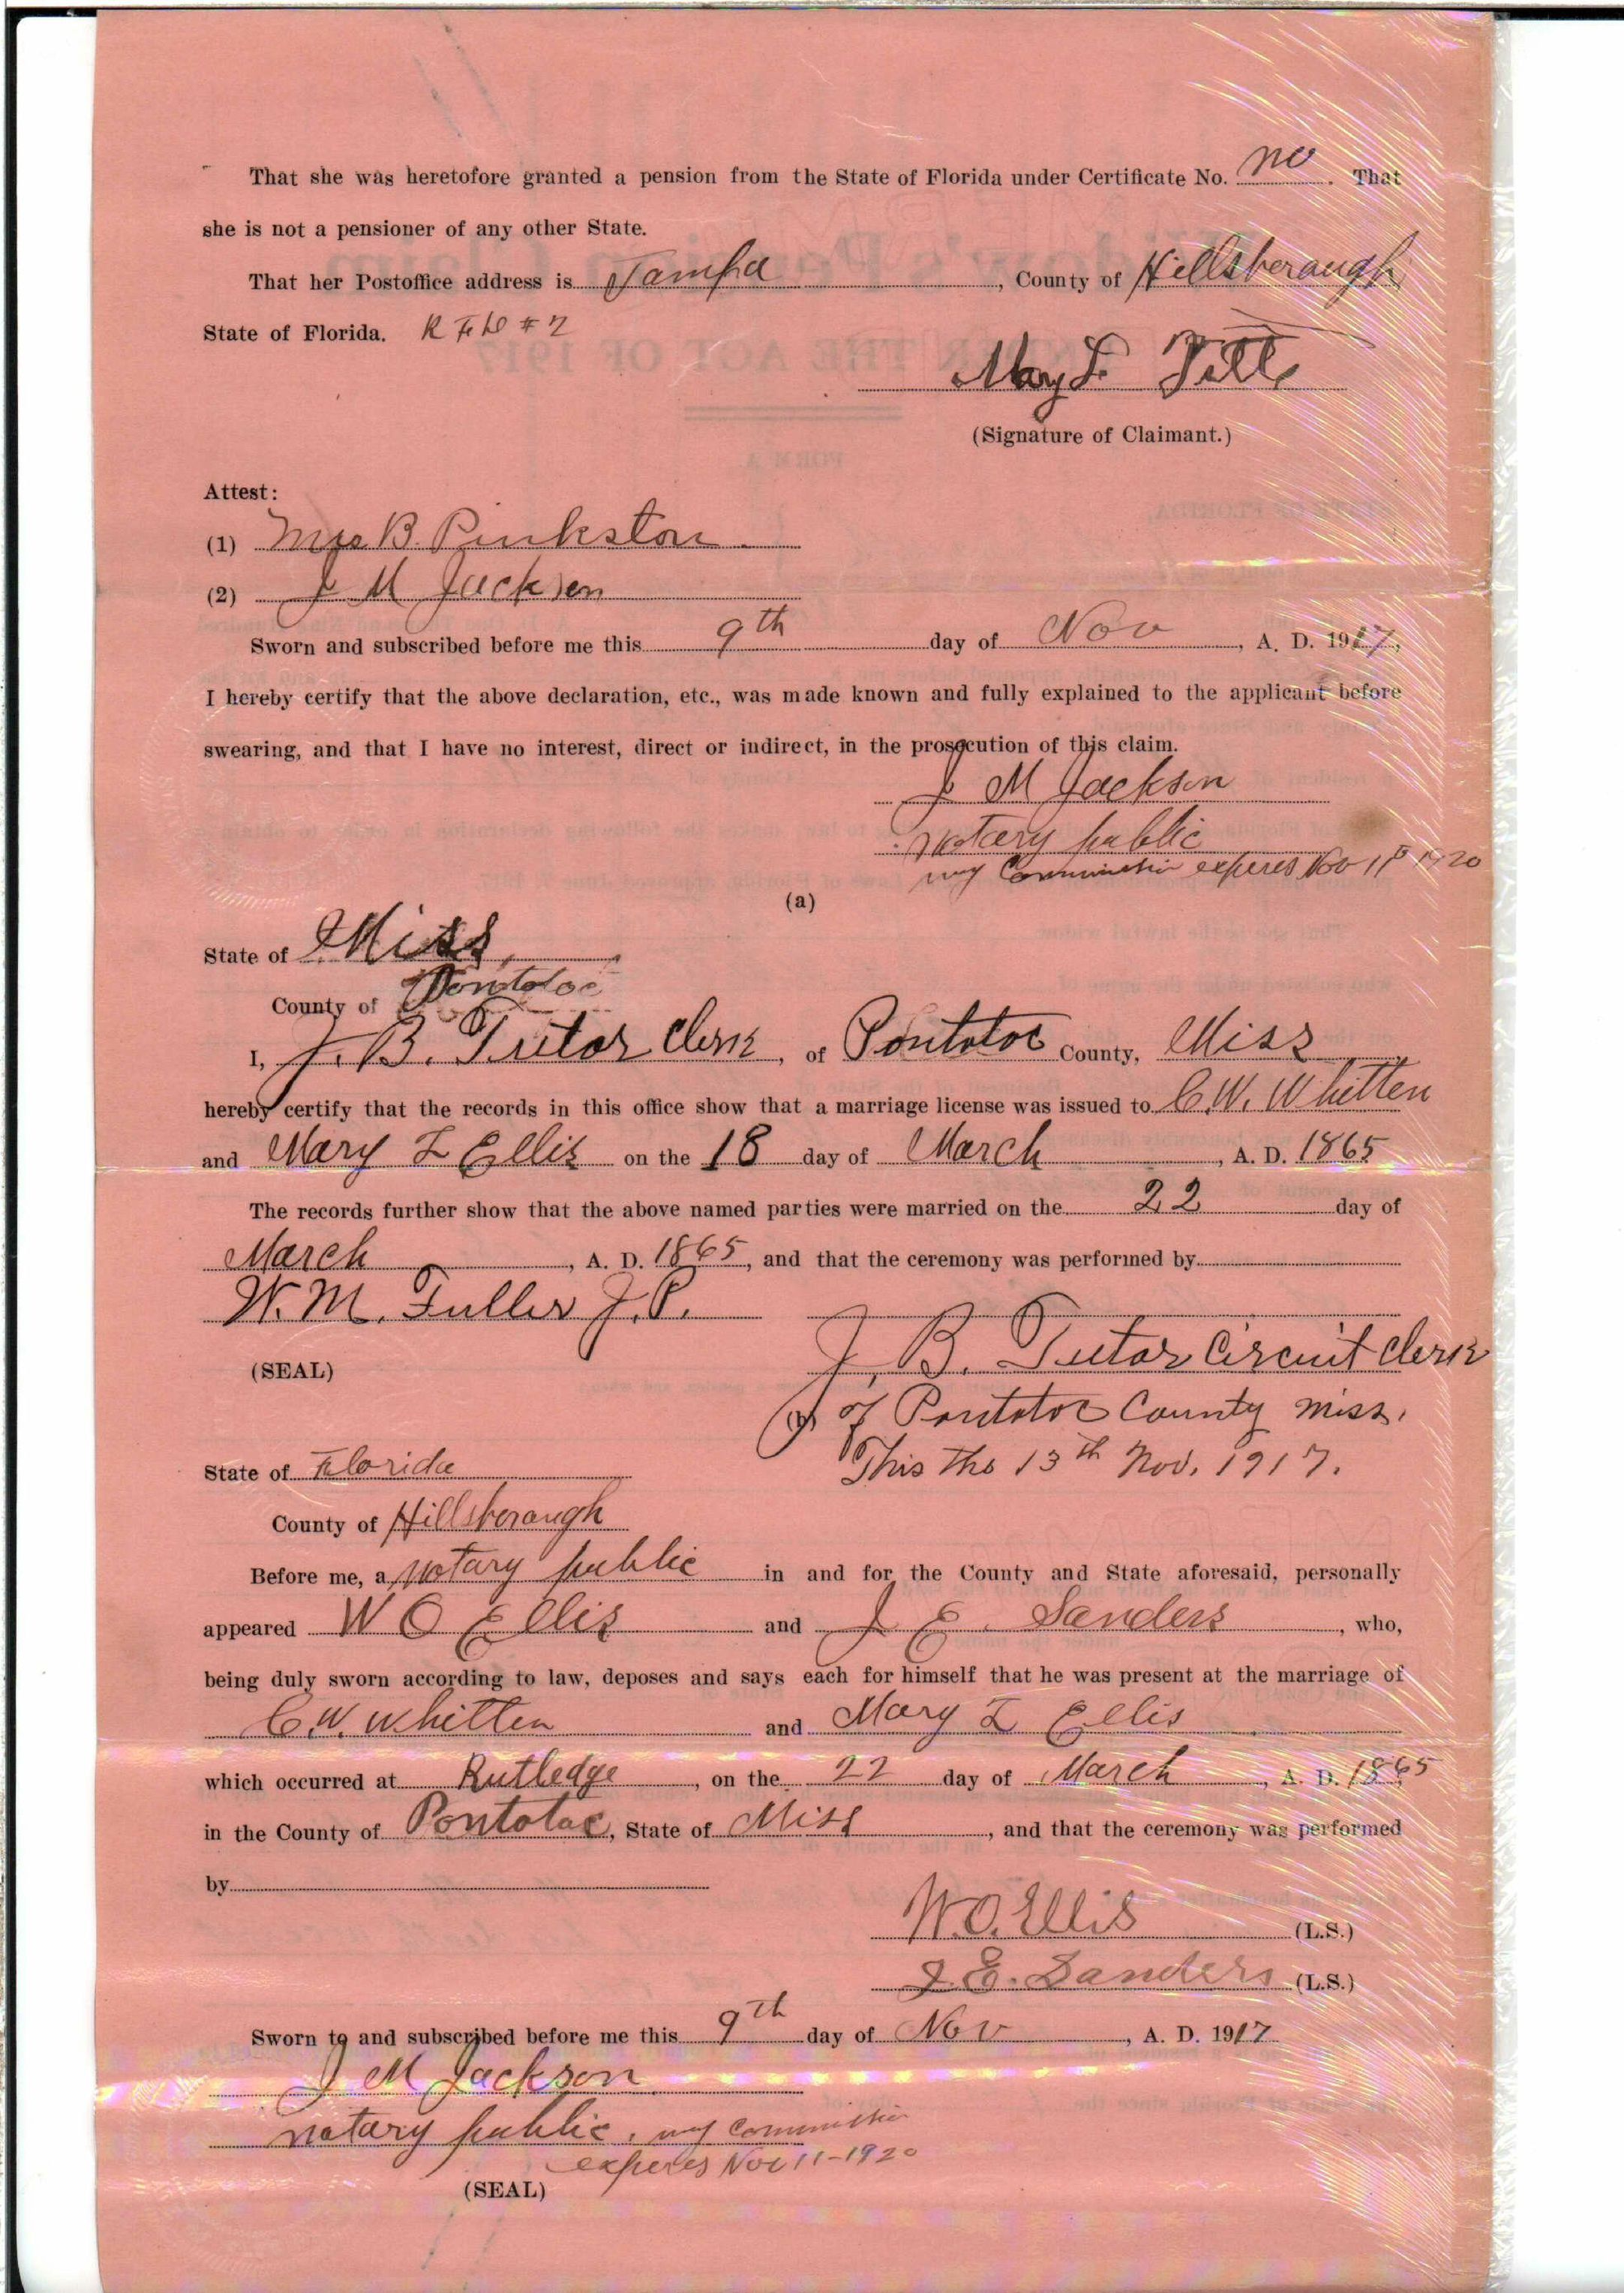 That she was heretofore granted a pension from the State of Florida under Certificate No. no. That
she is not a pensioner of any other State.
That her Postoffice address is Tampa, County of Hillsberaugh
State of Florida. R F D # 2
Mary L.
(Signature of Claimant.)
Attest:
(1) Mrs B. Pinkston
(2) J M Jackson
Sworn and subscribed before me this 9th day of Nov, A. D. 1917,
I hereby certify that the above declaration, etc., was made known and fully explained to the applicant before
swearing, and that I have no interest, direct or indirect, in the prosecution of this claim.
J M Jackson
notary public
my Commission experes Nov 11 1920
(a)
State of Miss,
County of Pontotoc
I, J. B. Tutor Clerk, of Pontotoc County, Miss
hereby certify that the records in this office show that a marriage license was issued to C. W. Whitten
and Mary L Ellis on the 18 day of March, A. D. 1865
The records further show that the above named parties were married on the 22 day of
March, A. D. 1865, and that the ceremony was performed by
W. M. Fuller J. P.
J. B. Tutor Circuit Clerk
(SEAL)
(b) of Pontotoc County Miss.
This the 13th Nov. 1917.
State of Florida
County of Hillsberaugh
Before me, a notary public in and for the County and State aforesaid, personally
appeared W O Ellis and J E. Sanders, who,
being duly sworn according to law, deposes and says each for himself that he was present at the marriage of
C. W. Whitten and Mary L Ellis
which occurred at Rutledge, on the 22 day of March, A. D. 1865
in the County of Pontotoc, State of Miss, and that the ceremony was performed
by
W. O. Ellis (L.S.)
J. E. Sanders (L.S.)
Sworn to and subscribed before me this 9th day of Nov, A. D. 1917
J M Jackson
notary public, my commission
experes Nov 11-1920
(SEAL)